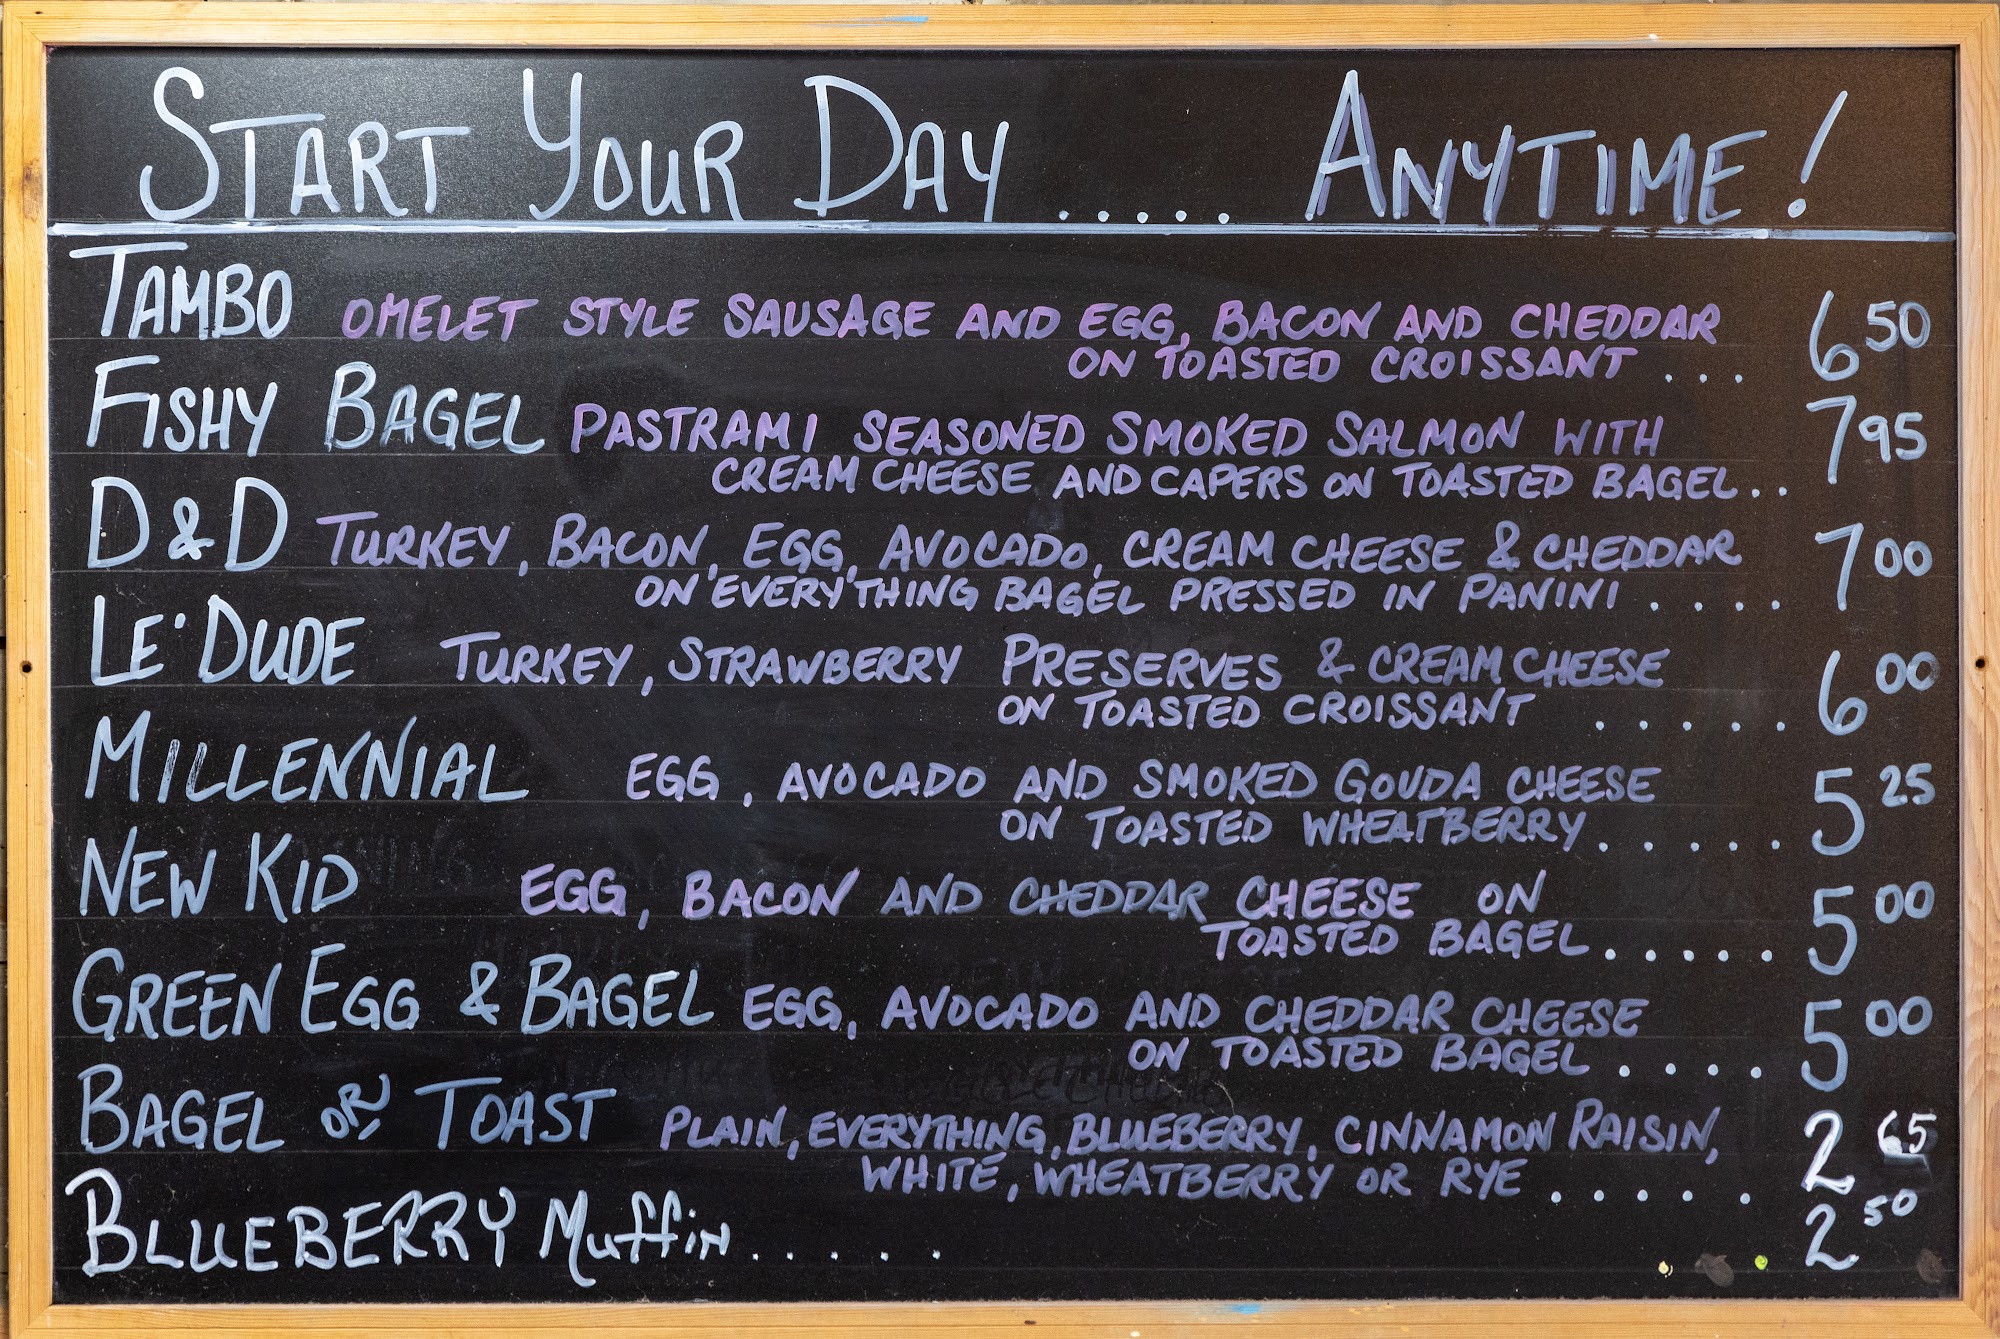 START YOUR DAY ..... ANYTIME!
TAMBO OMELET STYLE SAUSAGE AND EGG, BACON AND CHEDDAR
ON TOASTED CROISSANT ... 6 50
FISHY BAGEL PASTRAMI SEASONED SMOKED SALMON WITH
CREAM CHEESE AND CAPERS ON TOASTED BAGEL.. 7 95
D&D TURKEY, BACON, EGG, AVOCADO, CREAM CHEESE & CHEDDAR
ON 'EVERY'THING BAGEL PRESSED IN PANINI .... 7 00
LE' DUDE TURKEY, STRAWBERRY PRESERVES & CREAM CHEESE
ON TOASTED CROISSANT ..... 6 00
MILLENNIAL EGG, AVOCADO AND SMOKED GOUDA CHEESE
ON TOASTED WHEATBERRY..... 5 25
NEW KID EGG, BACON AND CHEDDAR CHEESE ON
TOASTED BAGEL..... 5 00
GREEN EGG & BAGEL EGG, AVOCADO AND CHEDDAR CHEESE
ON TOASTED BAGEL.... 5 00
BAGEL OR TOAST PLAIN, EVERYTHING, BLUEBERRY, CINNAMON RAISIN,
WHITE, WHEATBERRY OR RYE ..... 2 65
BLUEBERRY Muffin..... 2 50